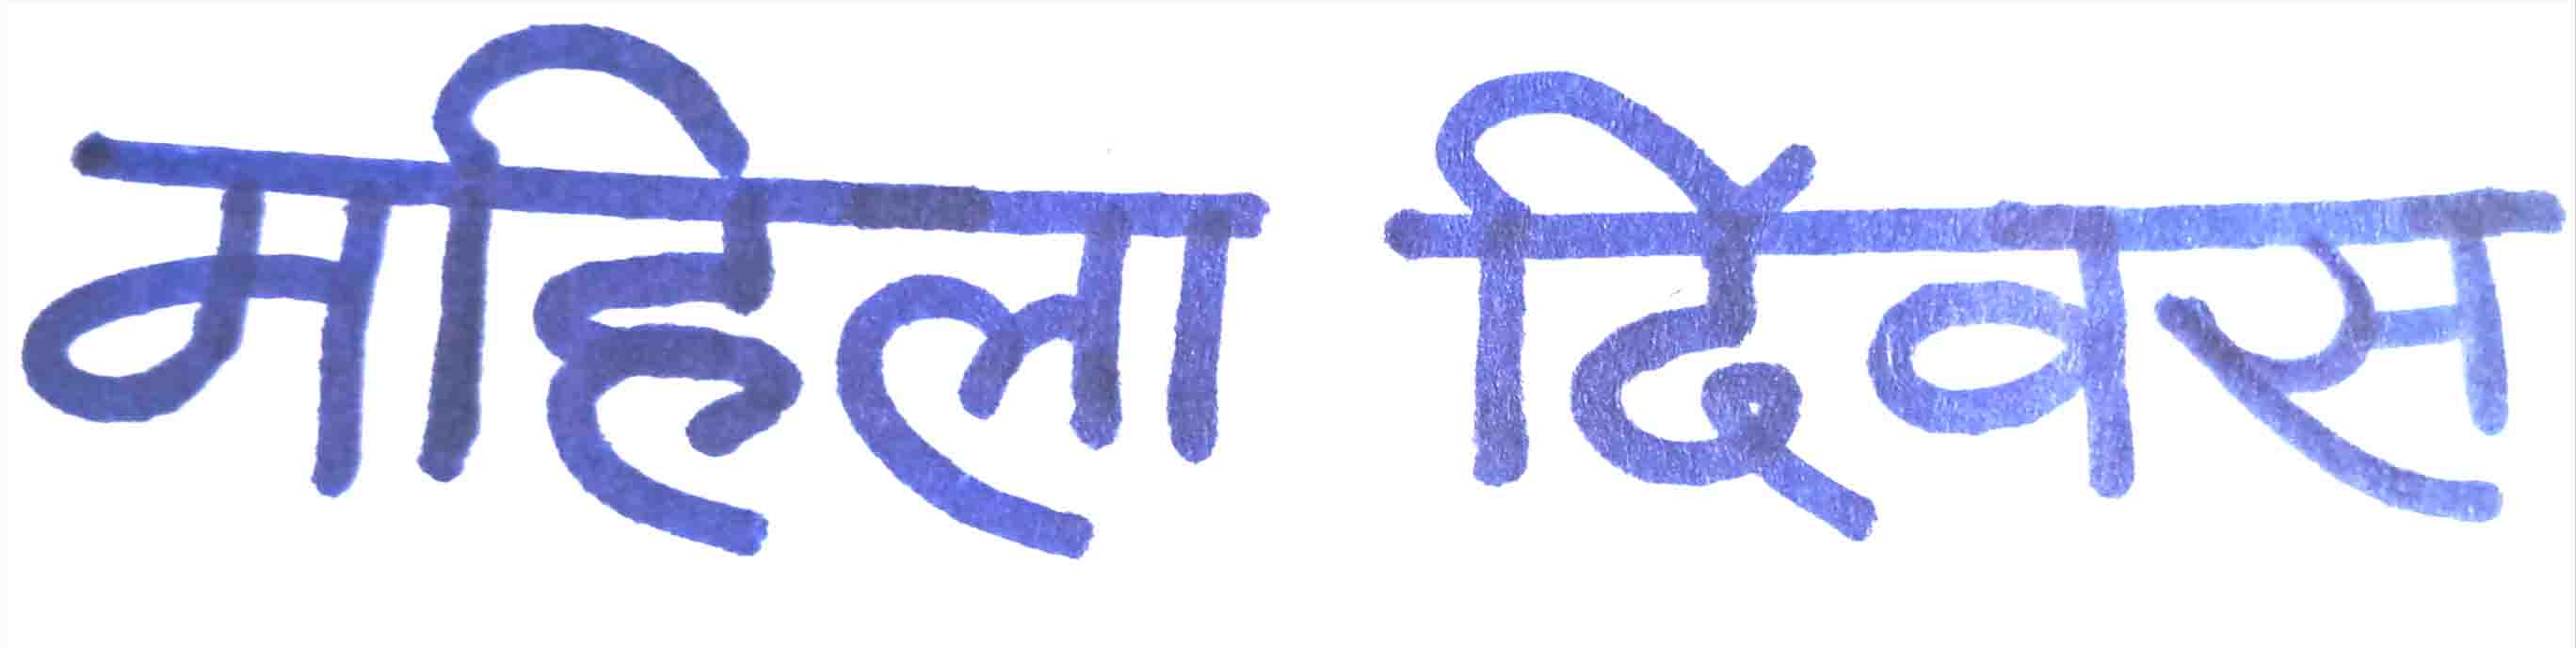 महिला दिवस